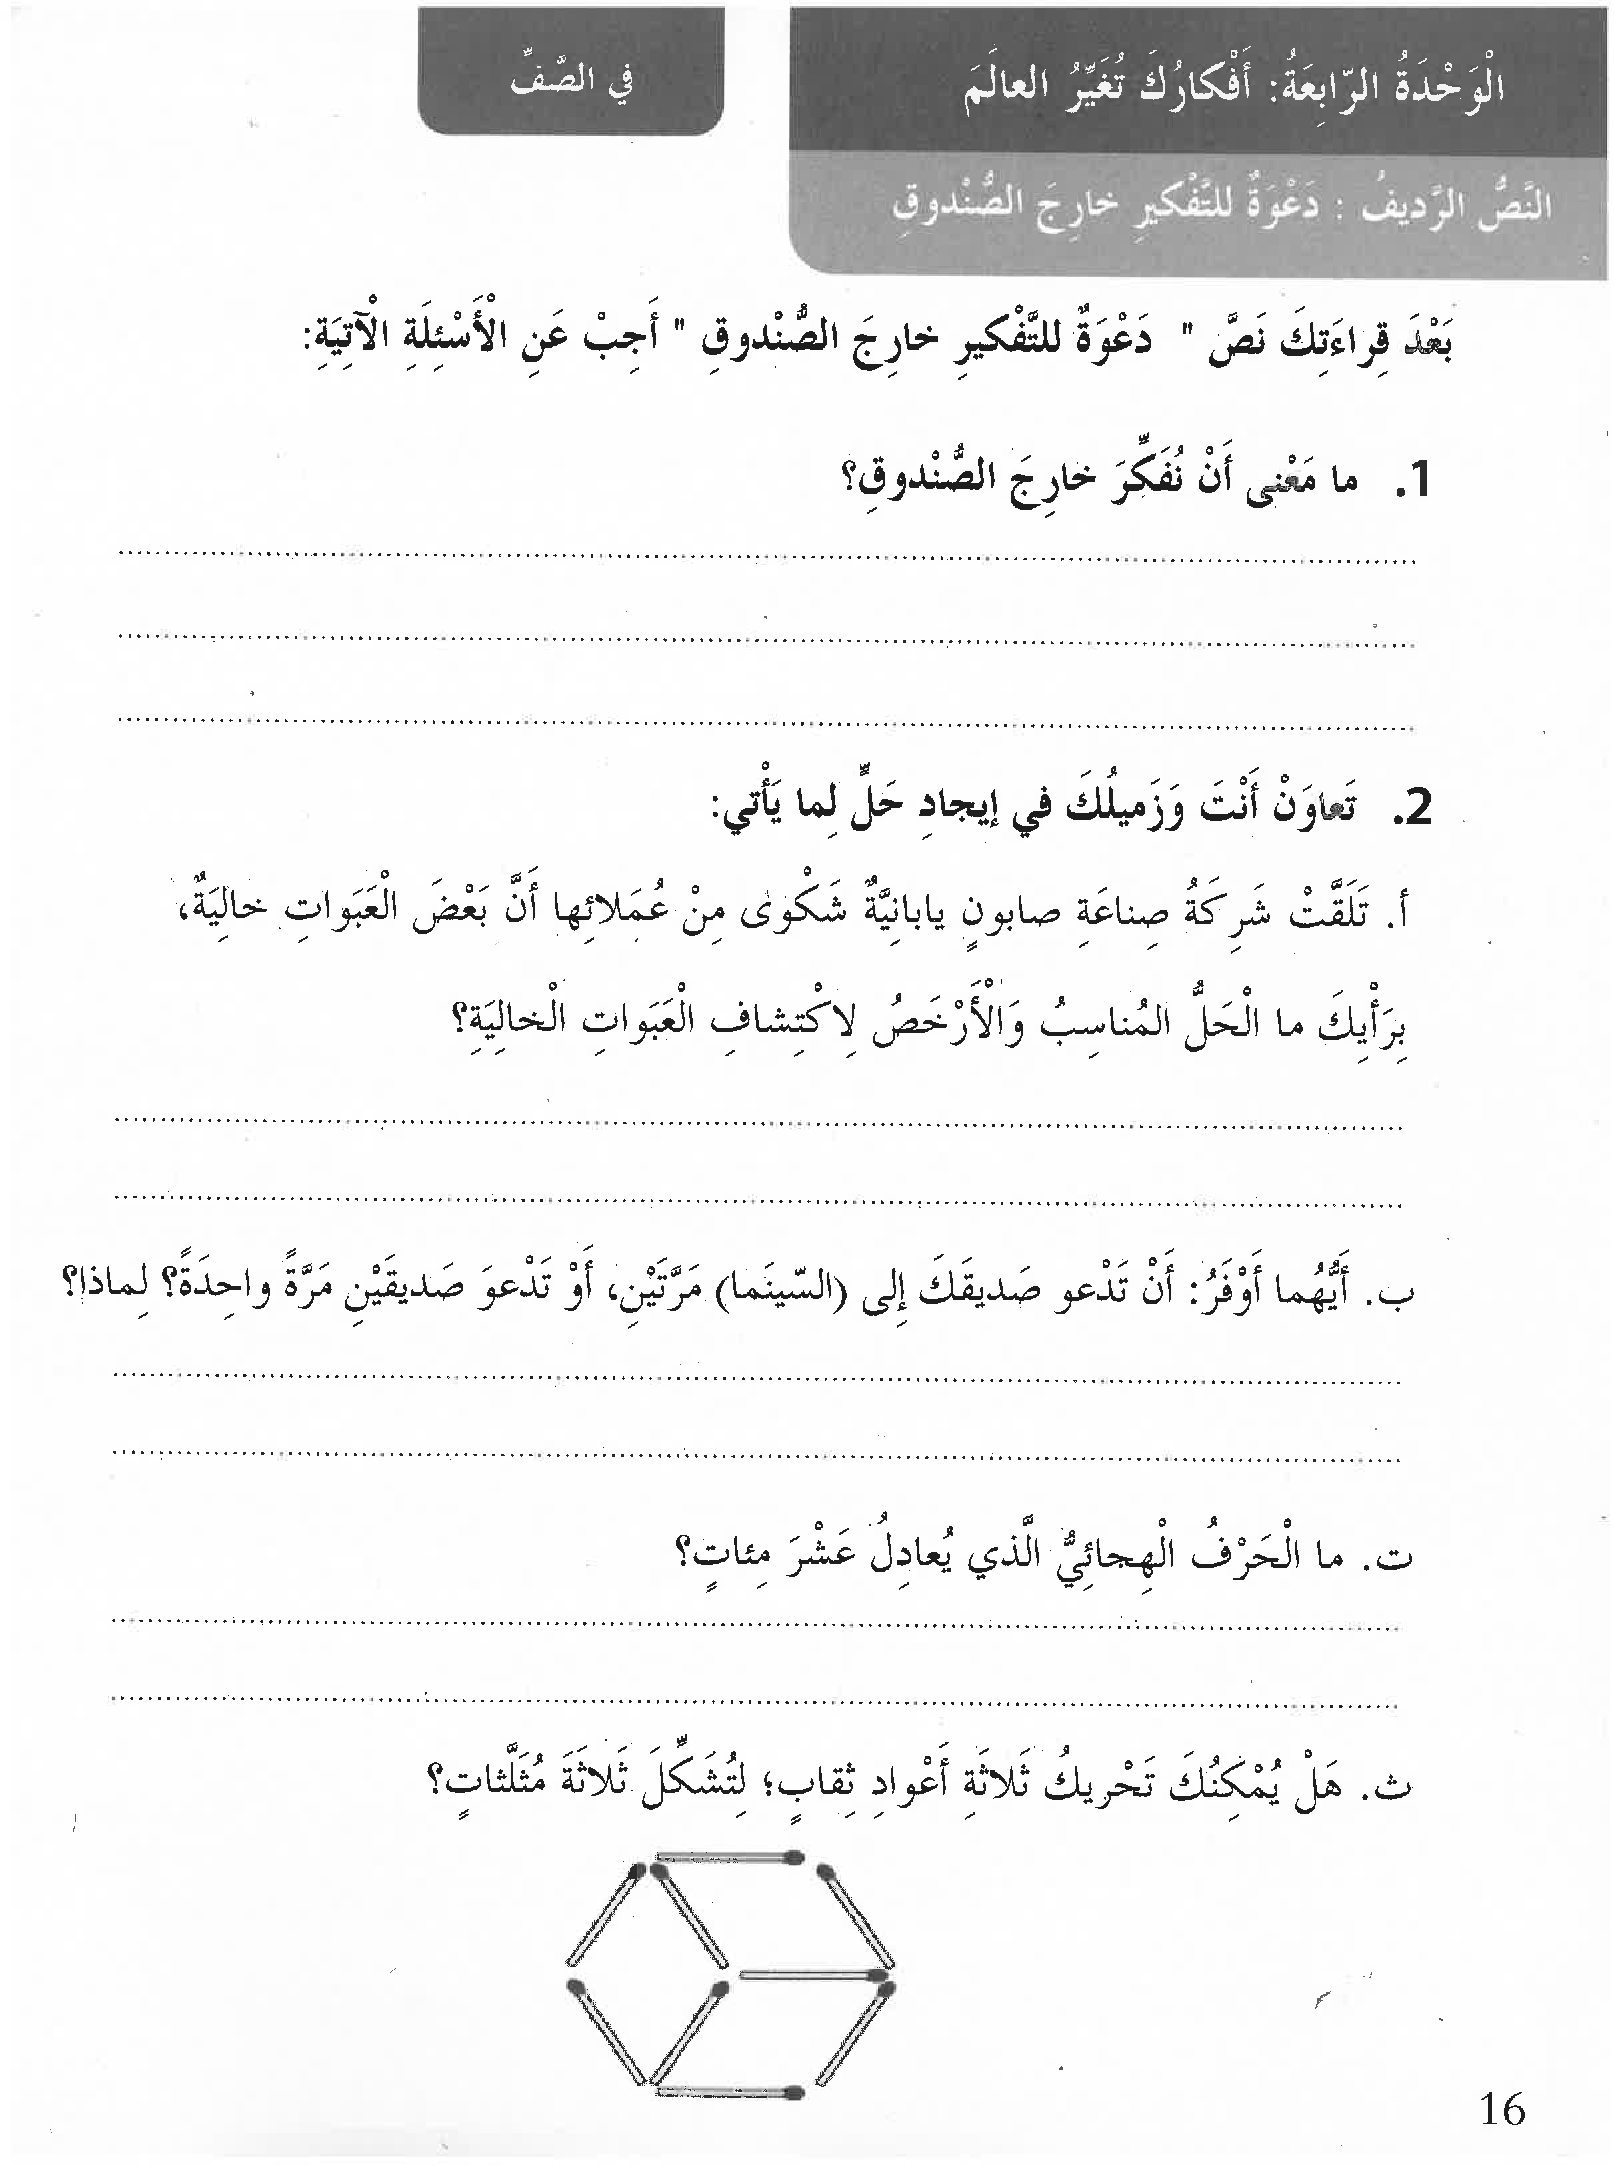 الْوَحْدَةُ الرّابِعَةُ: أَفْكارُكَ تُغَيِّرُ العالَمَ
في الصَّفِّ
النَّصُّ الرَّديفُ : دَعْوَةٌ للتَّفْكيرِ خارِجَ الصُّنْدوقِ
بَعْدَ قِراءَتِكَ نَصَّ " دَعْوَةٌ للتَّفْكيرِ خارِجَ الصُّنْدوقِ " أَجِبْ عَنِ الْأَسْئِلَةِ الْآتِيَةِ:
1. ما مَعْنى أَنْ نُفَكِّرَ خارِجَ الصُّنْدوقِ؟
2. تَعاوَنْ أَنْتَ وَزَميلُكَ في إيجادِ حَلٍّ لِما يَأْتي:
أ. تَلَقَّتْ شَرِكَةُ صِناعَةِ صابونٍ يابانِيَّةٌ شَكْوى مِنْ عُمَلائِها أَنَّ بَعْضَ الْعَبَواتِ خالِيَةٌ،
بِرَأْيِكَ ما الْحَلُّ المُناسِبُ وَالْأَرْخَصُ لِاكْتِشافِ الْعَبَواتِ الْخالِيَةِ؟
ب. أَيُّهُما أَوْفَرُ: أَنْ تَدْعو صَديقَكَ إِلى (السّينَما) مَرَّتَيْنِ، أَوْ تَدْعوَ صَديقَيْنِ مَرَّةً واحِدَةً؟ لِماذا؟
ت. ما الْحَرْفُ الْهِجائِيُّ الَّذي يُعادِلُ عَشْرَ مِئاتٍ؟
ث. هَلْ يُمْكِنُكَ تَحْريكُ ثَلاثَةِ أَعْوادِ ثِقابٍ؛ لِتُشَكِّلَ ثَلاثَةَ مُثَلَّثاتٍ؟
16